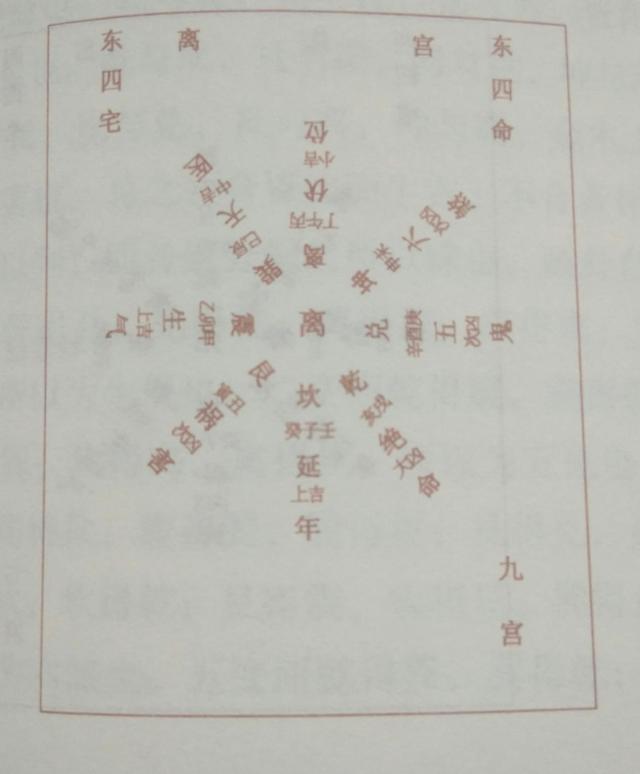 东四宅
离宫
东四命
离
丙午丁
伏
小吉
位
坤
六
煞
兑
庚酉辛
五
次凶
鬼
乾
亥戌
绝
大凶
命
坎
癸子壬
延
上吉
年
艮
寅丑
祸
次凶
害
震
乙卯甲
生
上吉
气
巽
辰巳
天
中吉
医
离
九宫